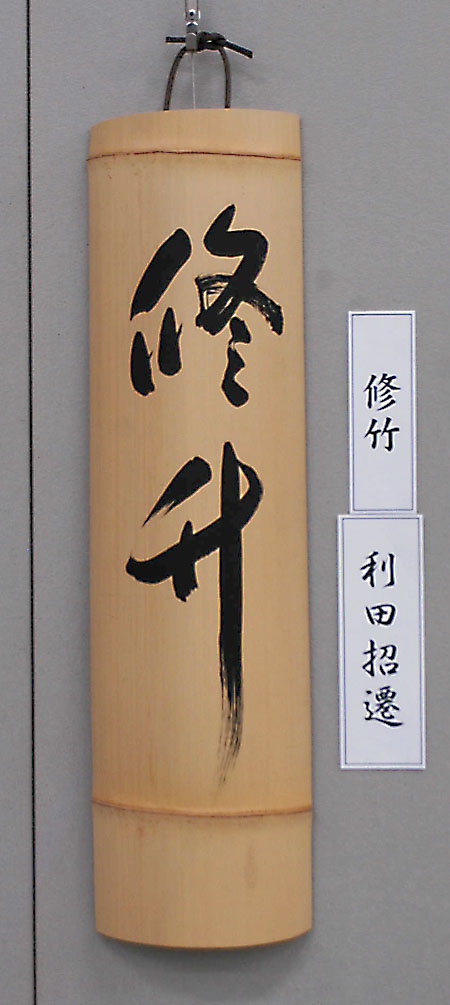 修竹
修竹
利田招遷